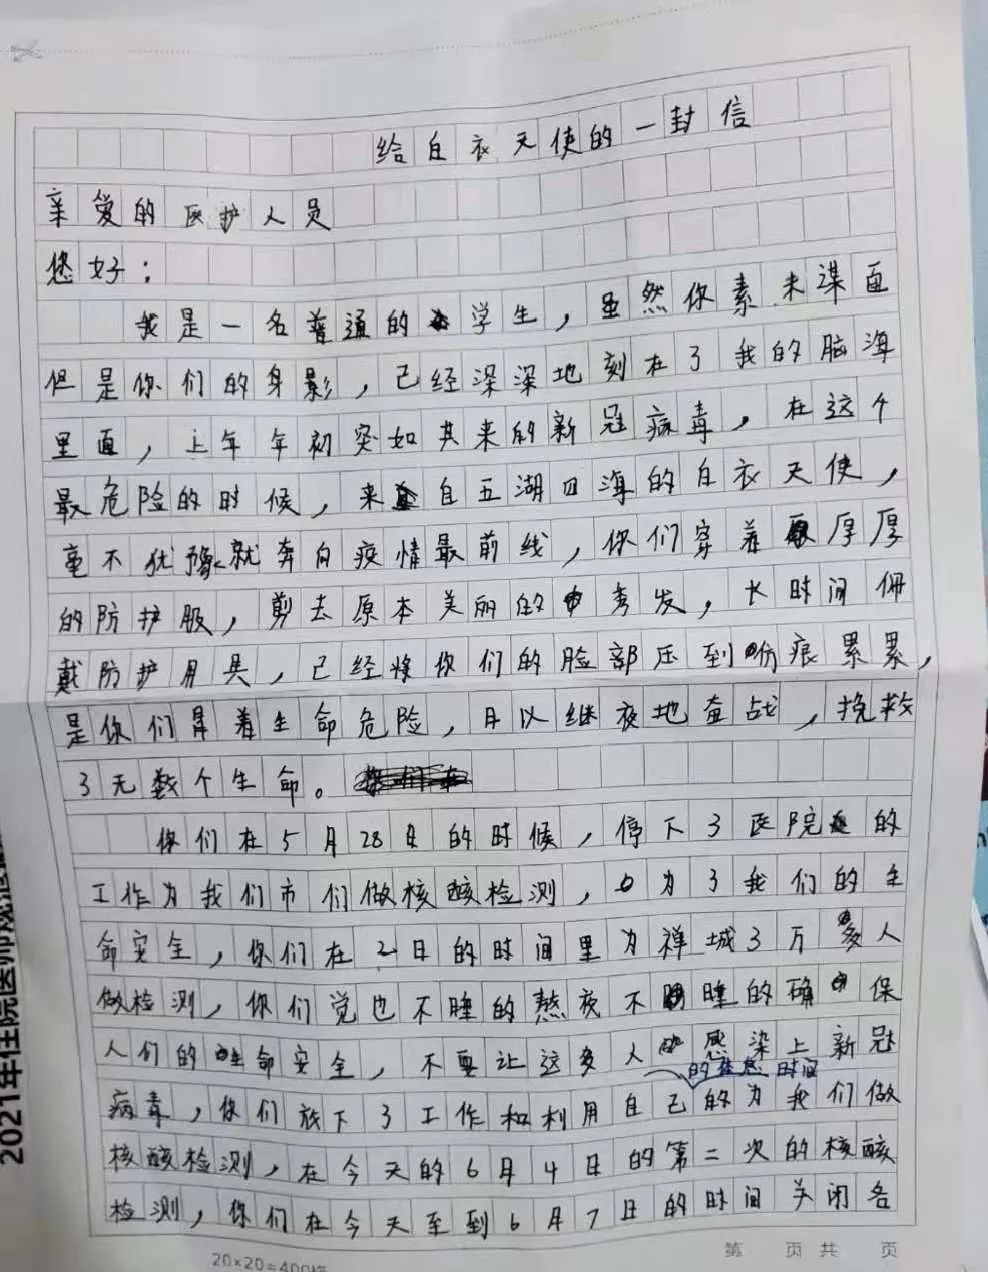 给白衣天使的一封信
亲爱的医护人员
您好：
我是一名普通的学生，虽然你素未谋面
但是你们的身影，已经深深地刻在了我的脑海
里面，上年年初突如其来的新冠病毒，在这个
最危险的时候，来自五湖四海的白衣天使，
毫不犹豫就奔向疫情最前线，你们穿着厚厚
的防护服，剪去原本美丽的秀发，长时间佩
戴防护用具，已经将你们的脸部压到伤痕累累，
是你们冒着生命危险，日以继夜地奋战，挽救
了无数个生命。
你们在5月28日的时候，停下了医院的
工作为我们市们做核酸检测，为了我们的生
命安全，你们在2日的时间里为禅城3万多人
做检测，你们觉也不睡的熬夜不睡的确保
人们的生命安全，不要让这多人感染上新冠
的休息时间
病毒，你们放下了工作和利用自己的为我们做
核酸检测，在今天的6月4日的第二次的核酸
检测，你们在今天至到6月7日的时间关闭各
20×20=400格
第 页共 页
2021年住院医师规范